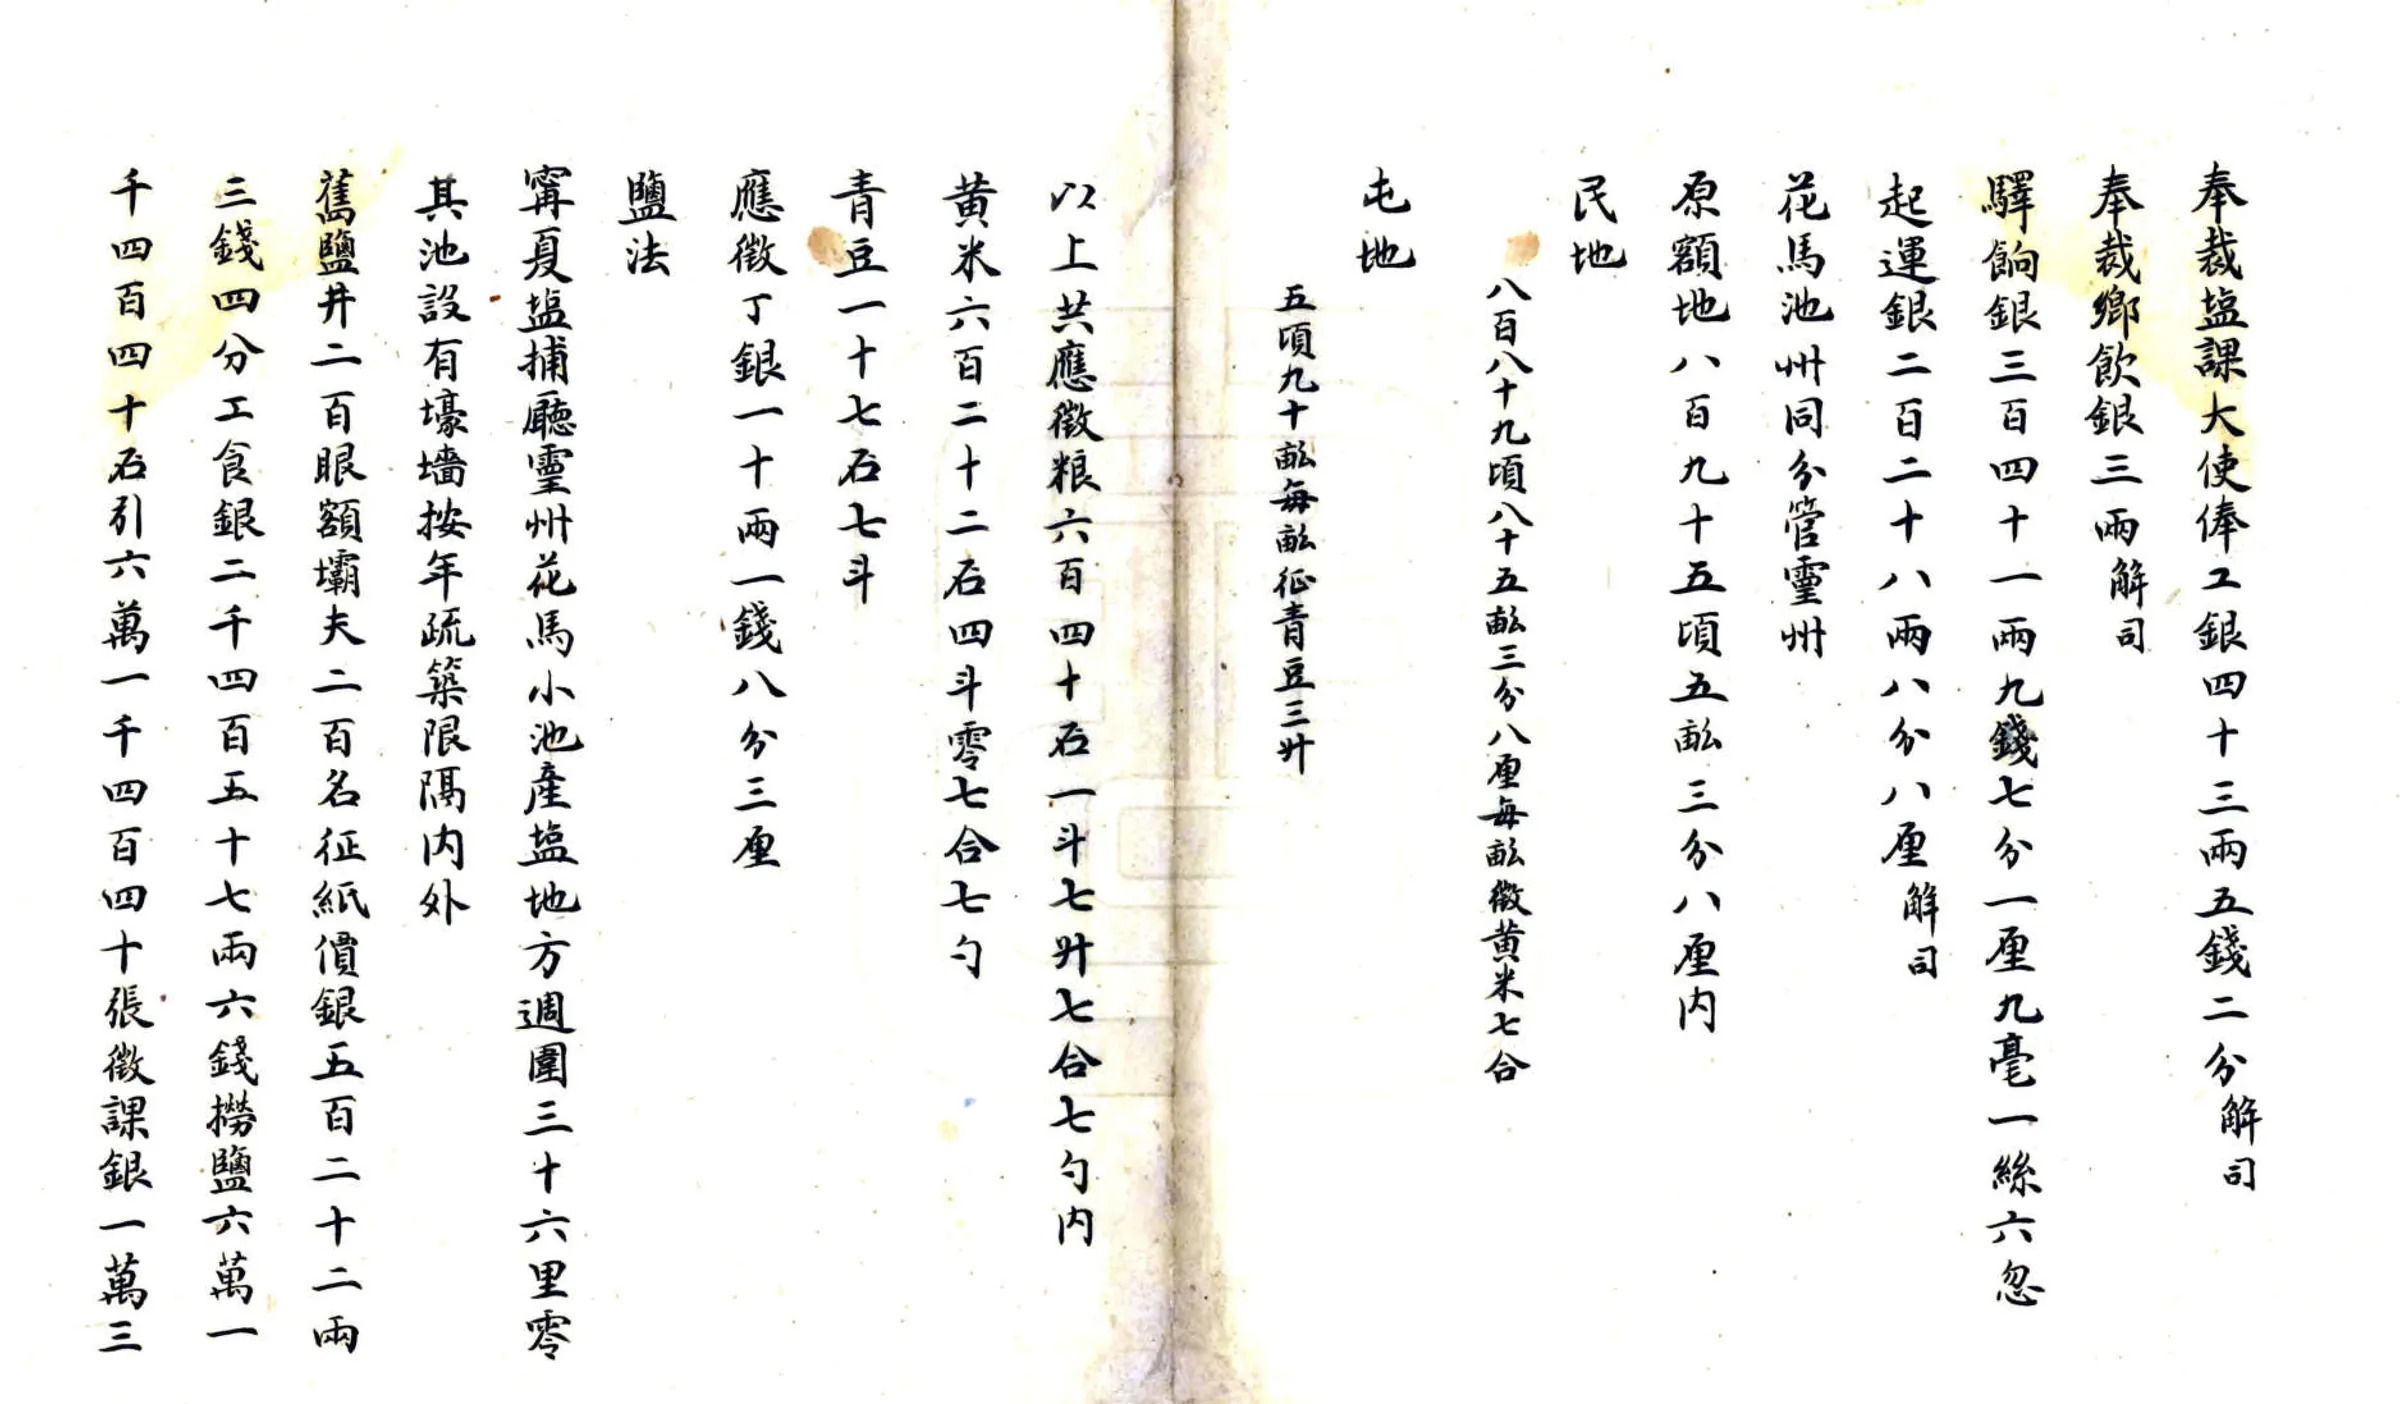 奉裁塩課大使俸工銀四十三兩五錢二分解司
奉裁鄉飲銀三兩解司
驛餉銀三百四十一兩九錢七分一厘九毫一絲六忽
起運銀二百二十八兩八分八厘解司
花馬池州同分管靈州
原額地八百九十五頃五畝三分八厘内
民地
八百八十九頃八十五畝三分八厘每畝徵黄米七合
屯地
五頃九十畝每畝征青豆三升
以上共應徵粮六百四十石一斗七升七合七勺内
黄米六百二十二石四斗零七合七勺
青豆一十七石七斗
應徵丁銀一十兩一錢八分三厘
鹽法
寗夏塩捕廳靈州花馬小池產塩地方週圍三十六里零
其池設有壕墻按年疏築限隔内外
舊鹽井二百眼額壩夫二百名征紙價銀五百二十二兩
三錢四分工食銀二千四百五十七兩六錢撈鹽六萬一
千四百四十石引六萬一千四百四十張徵課銀一萬三